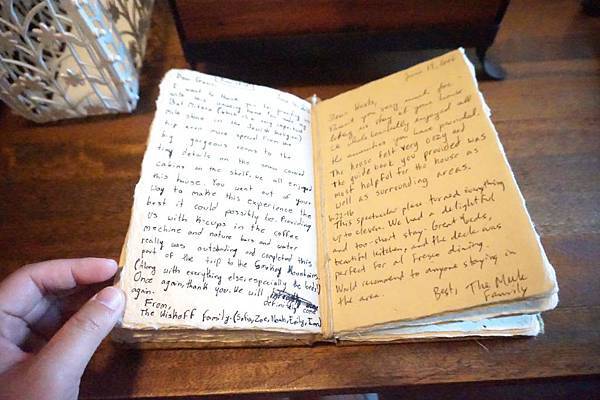 I want to thank you for providing us
with this amazing home for
hip even more special from the
gorgeous rooms to the
tiny details on the
on the shelf, we all enjoyed
this house. You went out of your
way to make this experience the
best it could possibly be. Providing
us with K-cups in the coffee
machine and nature bars and water
really was outstanding and completed this
part of the trip to the Smokey Mountains.
(Along with everything else, especially the beds!)
Once again, thank you. We will
definitely come
again.
From,
The Wishoff Family.
June
Dear Hosts,
Thank you very much for
letting us stay at your house
we wholeheartedly enjoyed all
the amenities you have provided.
The house felt very cozy and
the guide book you provided was
most helpful for the house as
well as surrounding areas.
6-22-16
This spectacular place turned everything
up to eleven. We had a delightful
and too-short stay. Great beds,
beautiful kitchen, and the deck was
perfect for al fresco dining.
Would recommend to anyone staying in
the area.
Best, The
Family